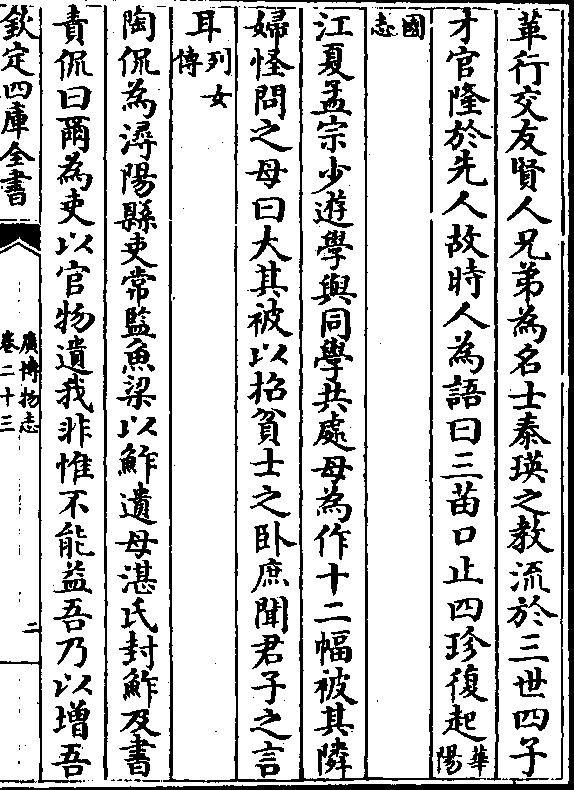 革行交友賢人兄弟為名士泰瑛之教流於三世四子
才官隆於先人故時人為語曰三苗口止四珍復起華陽
國志
江夏孟宗少遊學與同學共處母為作十二幅被其隣
婦怪問之母曰大其被以招貧士之卧庶聞君子之言
耳列女傳
陶侃為潯陽縣吏常監魚梁以鮓遺母湛氏封鮓及書
責侃曰爾為吏以官物遺我非惟不能益吾乃以增吾
欽定四庫全書
廣博物志
卷二十三
二